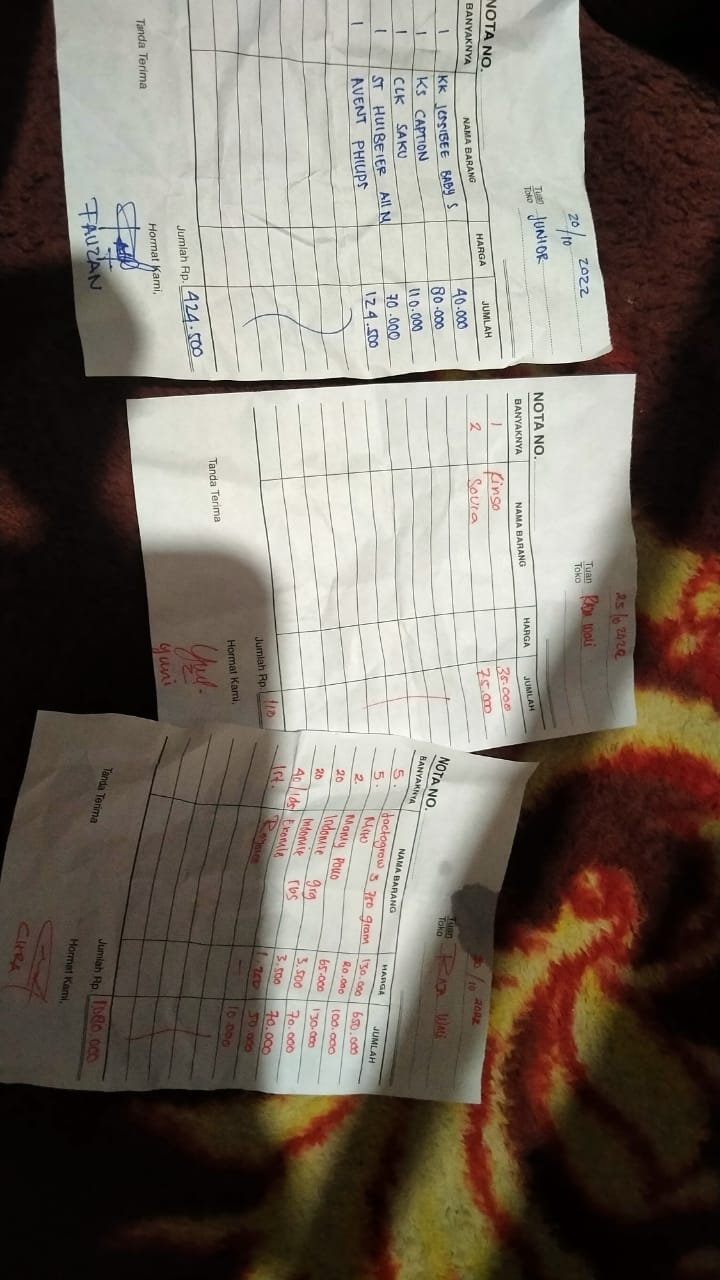 20/10 2022
Tuan
Toko JUNIOR
NOTA NO.
BANYAKNYA NAMA BARANG HARGA JUMLAH
1 KK JESSIBEE BABY S 40.000
1 KS CAPTION 80.000
1 CLK SAKU 110.000
1 ST HUIBEIER 70.000
1 AVENT PHILIPS 124.500
Jumlah Rp. 424.500
Tanda Terima Hormat Kami,
FAUZAN
25/10 2022
Tuan
Toko RAJA WALI
NOTA NO.
BANYAKNYA NAMA BARANG HARGA JUMLAH
1 Rinso 35.000
2 75.000
Jumlah Rp. 110
Tanda Terima Hormat Kami,
Yuni
10 2022
Tuan
Toko RAJA WALI
NOTA NO.
BANYAKNYA NAMA BARANG HARGA JUMLAH
5. Lactogrow 3 750 gram 130.000 650.000
5. Milo 20.000 100.000
2 Mamy Poko 65.000 130.000
20 Indomie grg 3.500 70.000
20 Indomie rbs 3.500 70.000
40/1ds Ekomie 1.200 50.000
10.000
Jumlah Rp. 1080.000
Tanda Terima Hormat Kami,
CITRA